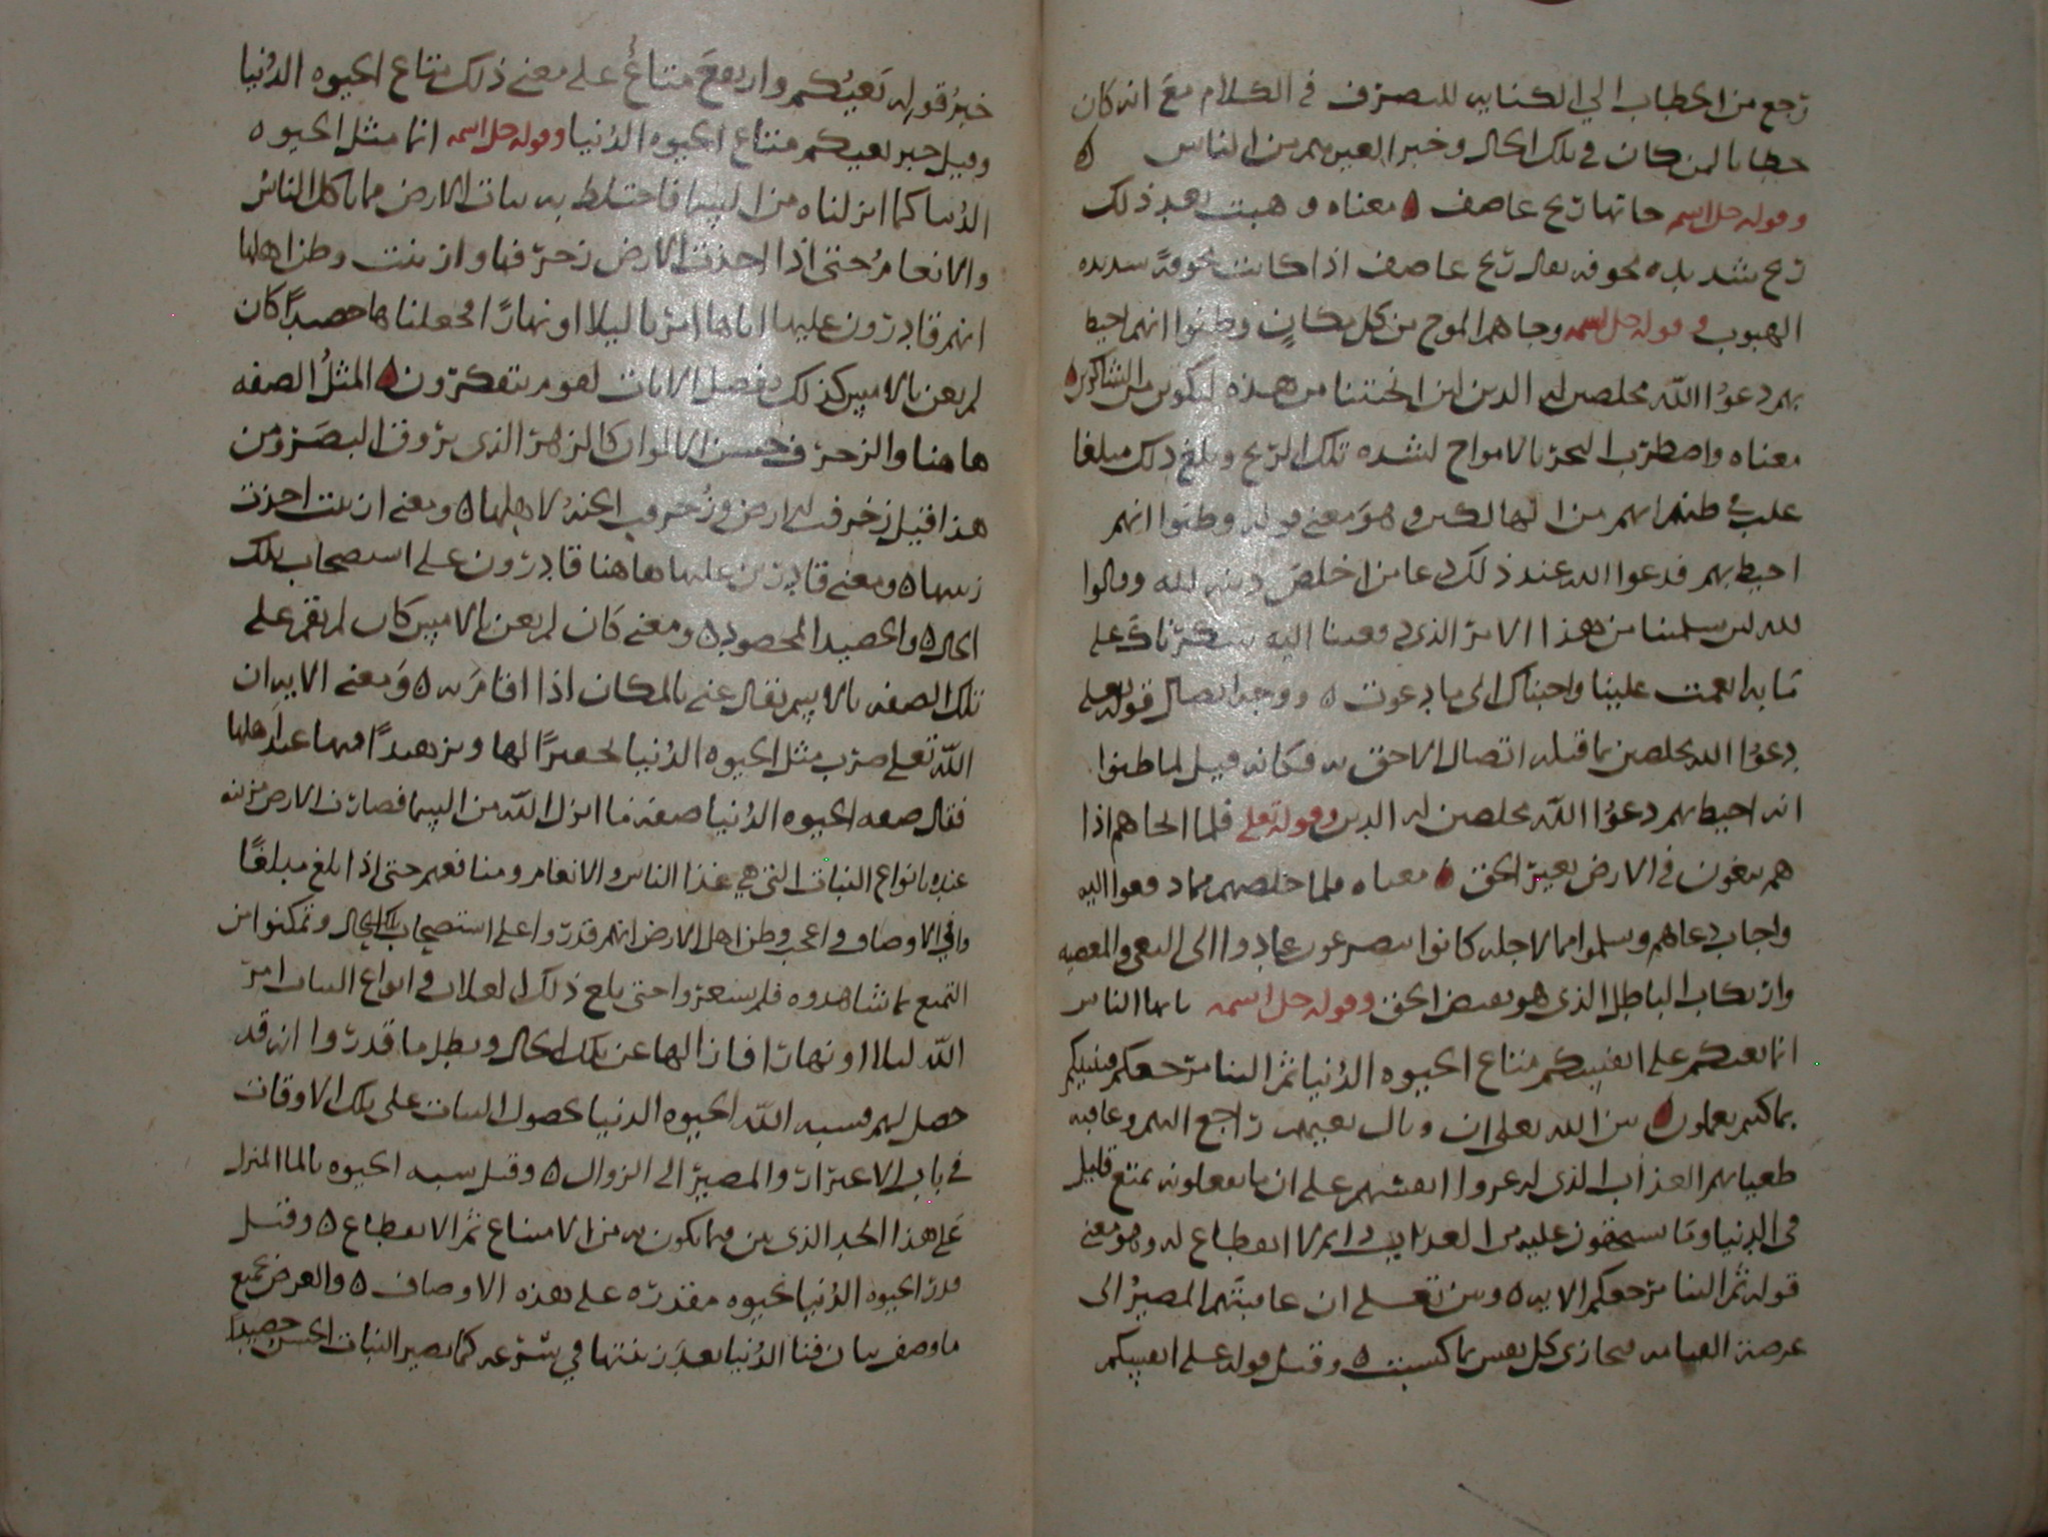 رجع من الخطاب الي الكنايه للتصرف في الكلام مع انه كان
خطابا لمن كان في تلك الحال وخبر العيرهم من الناس ٥
وقوله جل اسمه جاتها ريح عاصف ٥ معناه وهبت بعد ذلك
ريح شديده مخوفه يقال ريح عاصف اذا كانت مخوفة شديده
الهبوب في قوله جل اسمه وجاهم الموج من كل مكان وظنوا انهم احيط
بهم دعوا الله مخلصين له الدين لين انجيتنا من هذه لنكونن من الشاكرين ٥
معناه واضطرب البحر بالامواج لشده تلك الريح وبلغ ذلك مبلغا
غلب في ظنهم انهم من الهالكين وهو معني قوله وظنوا انهم
احيط بهم فدعوا الله عند ذلك دعا من اخلص دينه لله وقالوا
لله لين سلمتنا من هذا الامر الذي دفعنا اليه شكرناك علي
ما به انعمت علينا واجبناك الي ما دعوت ٥ ووجه اتصال قوله تعلي
دعوا الله مخلصين بما قبله اتصال الاحق به فكانه قيل لما ظنوا
انه احيط بهم دعوا الله مخلصين له الدين وقوله تعلي فلما انجاهم اذا
هم يبغون في الارض بغير الحق ٥ معناه فلما خلصهم مما دفعوا اليه
واجاب دعاهم وسلموا مما لاجله كانوا يتضرعون عادوا الي البغي والمعصيه
وارتكاب الباطل الذي هو نقيض الحق وقوله جل اسمه يايها الناس
انما بغيكم علي انفسكم متاع الحيوه الدنيا ثم الينا مرجعكم فننبيكم
بما كنتم تعملون ٥ بين الله تعلي ان وبال بغيهم راجع اليهم وعاقبه
طغيانهم العذاب الذي له عرضوا انفسهم علي ان ما يفعلونه تمتع قليل
في الدنيا وما يستحقون عليه من العذاب دايم لا انقطاع له وهو معني
قوله ثم الينا مرجعكم الايه ٥ وبين تعلي ان عاقبتهم المصير الي
عرصة القيامه فيجازي كل نفس بما كسبت ٥ وقيل قوله علي انفسكم
خبر قوله بغيكم وارتفع متاع علي معني ذلك متاع الحيوه الدنيا
وقيل خبر بغيكم متاع الحيوه الدنيا وقوله جل اسمه انما مثل الحيوه
الدنيا كما انزلناه من السما فاختلط به نبات الارض مما ياكل الناس
والانعام حتي اذا اخذت الارض زخرفها وازينت وظن اهلها
انهم قادرون عليها اتاها امرنا ليلا او نهارا فجعلناها حصيدا كان
لم يغن بالامس كذلك نفصل الايات لقوم يتفكرون ٥ المثل الصفه
هاهنا والزخرف حسن الالوان كالزهر الذي يروق البصر ومن
هذا قيل زخرفت الارض وزخرفت الجنه لاهلها ٥ ومعني ازينت اخذت
زينتها ٥ ومعني قادرين عليها هاهنا قادرون علي استصحاب تلك
الحال ٥ والحصيد المحصود ٥ ومعني كان لم يغن بالامس كان لم يقم علي
تلك الصفه بالامس يقال غني بالمكان اذا اقام به ٥ ومعني الايه ان
الله تعلي ضرب مثل الحيوه الدنيا تحقيرا لها وتزهيدا فيها عند اهلها
فقال صفه الحيوه الدنيا صفة ما انزل الله من السما فصارت الارض مزينه
عنده بانواع النبات التي هي غذا الناس والانعام ومنافعهم حتي اذا بلغ مبلغا
وافي الاوصاف واعجب وظن اهل الارض انهم قدروا علي استصحاب تلك الحال وتمكنوا من
التمتع بما شاهدوه فلم يشعروا حتي بلغ ذلك في انواع النبات امر
الله ليلا او نهارا فازالها عن تلك الحال وبطل ما قدروا انه قد
حصل لهم فشبه الله الحيوه الدنيا بحصول النبات علي تلك الاوقات
في باب الاغترار والمصير الي الزوال ٥ وقيل شبه الحيوه بالما المنزل
علي هذا الحد الذي بين فيما يكون به من الامتاع ثم الانقطاع ٥ وقيل
قدر الحيوه الدنيا بحيوه مقدره علي هذه الاوصاف ٥ والغرض بجميع
ما وصف بيان فنا الدنيا بعد زينتها في سرعه كما يصير النبات الحسن حصيدا